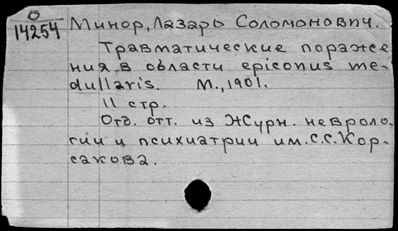 О
14254
Минор, Лазарь Соломонович.
Травматические пораже
ния в области epiconus me-
dullaris. М., 1901.
11 стр.
Отд. отт. из Журн. невроло-
гии и психиатрии им. С.С. Кор-
сакова.